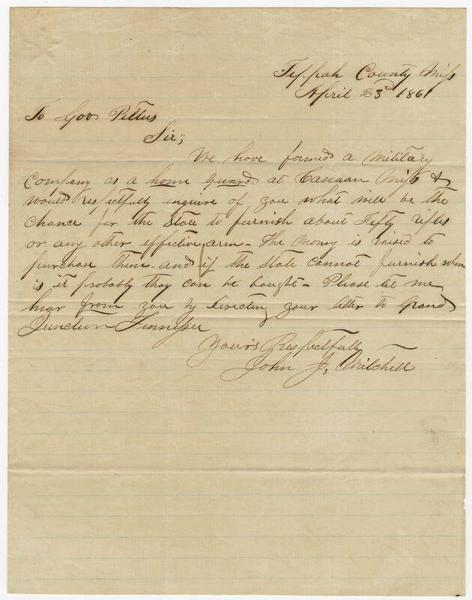 Tippah County Miss
April 23rd 1861
To Gov Pettus
Sir;
We have formed a Military
Company as a home guard at Canaan Miss &
would respectfully enquire of you what will be the
chance for the State to furnish about Fifty rifles
or any other effective arm - The money is raised to
purchase them and if the State cannot furnish where
is it probably they can be bought - Please let me
hear from you by directing your letter to Grand
Junction Tennessee
Yours Respectfully
John J. Mitchell